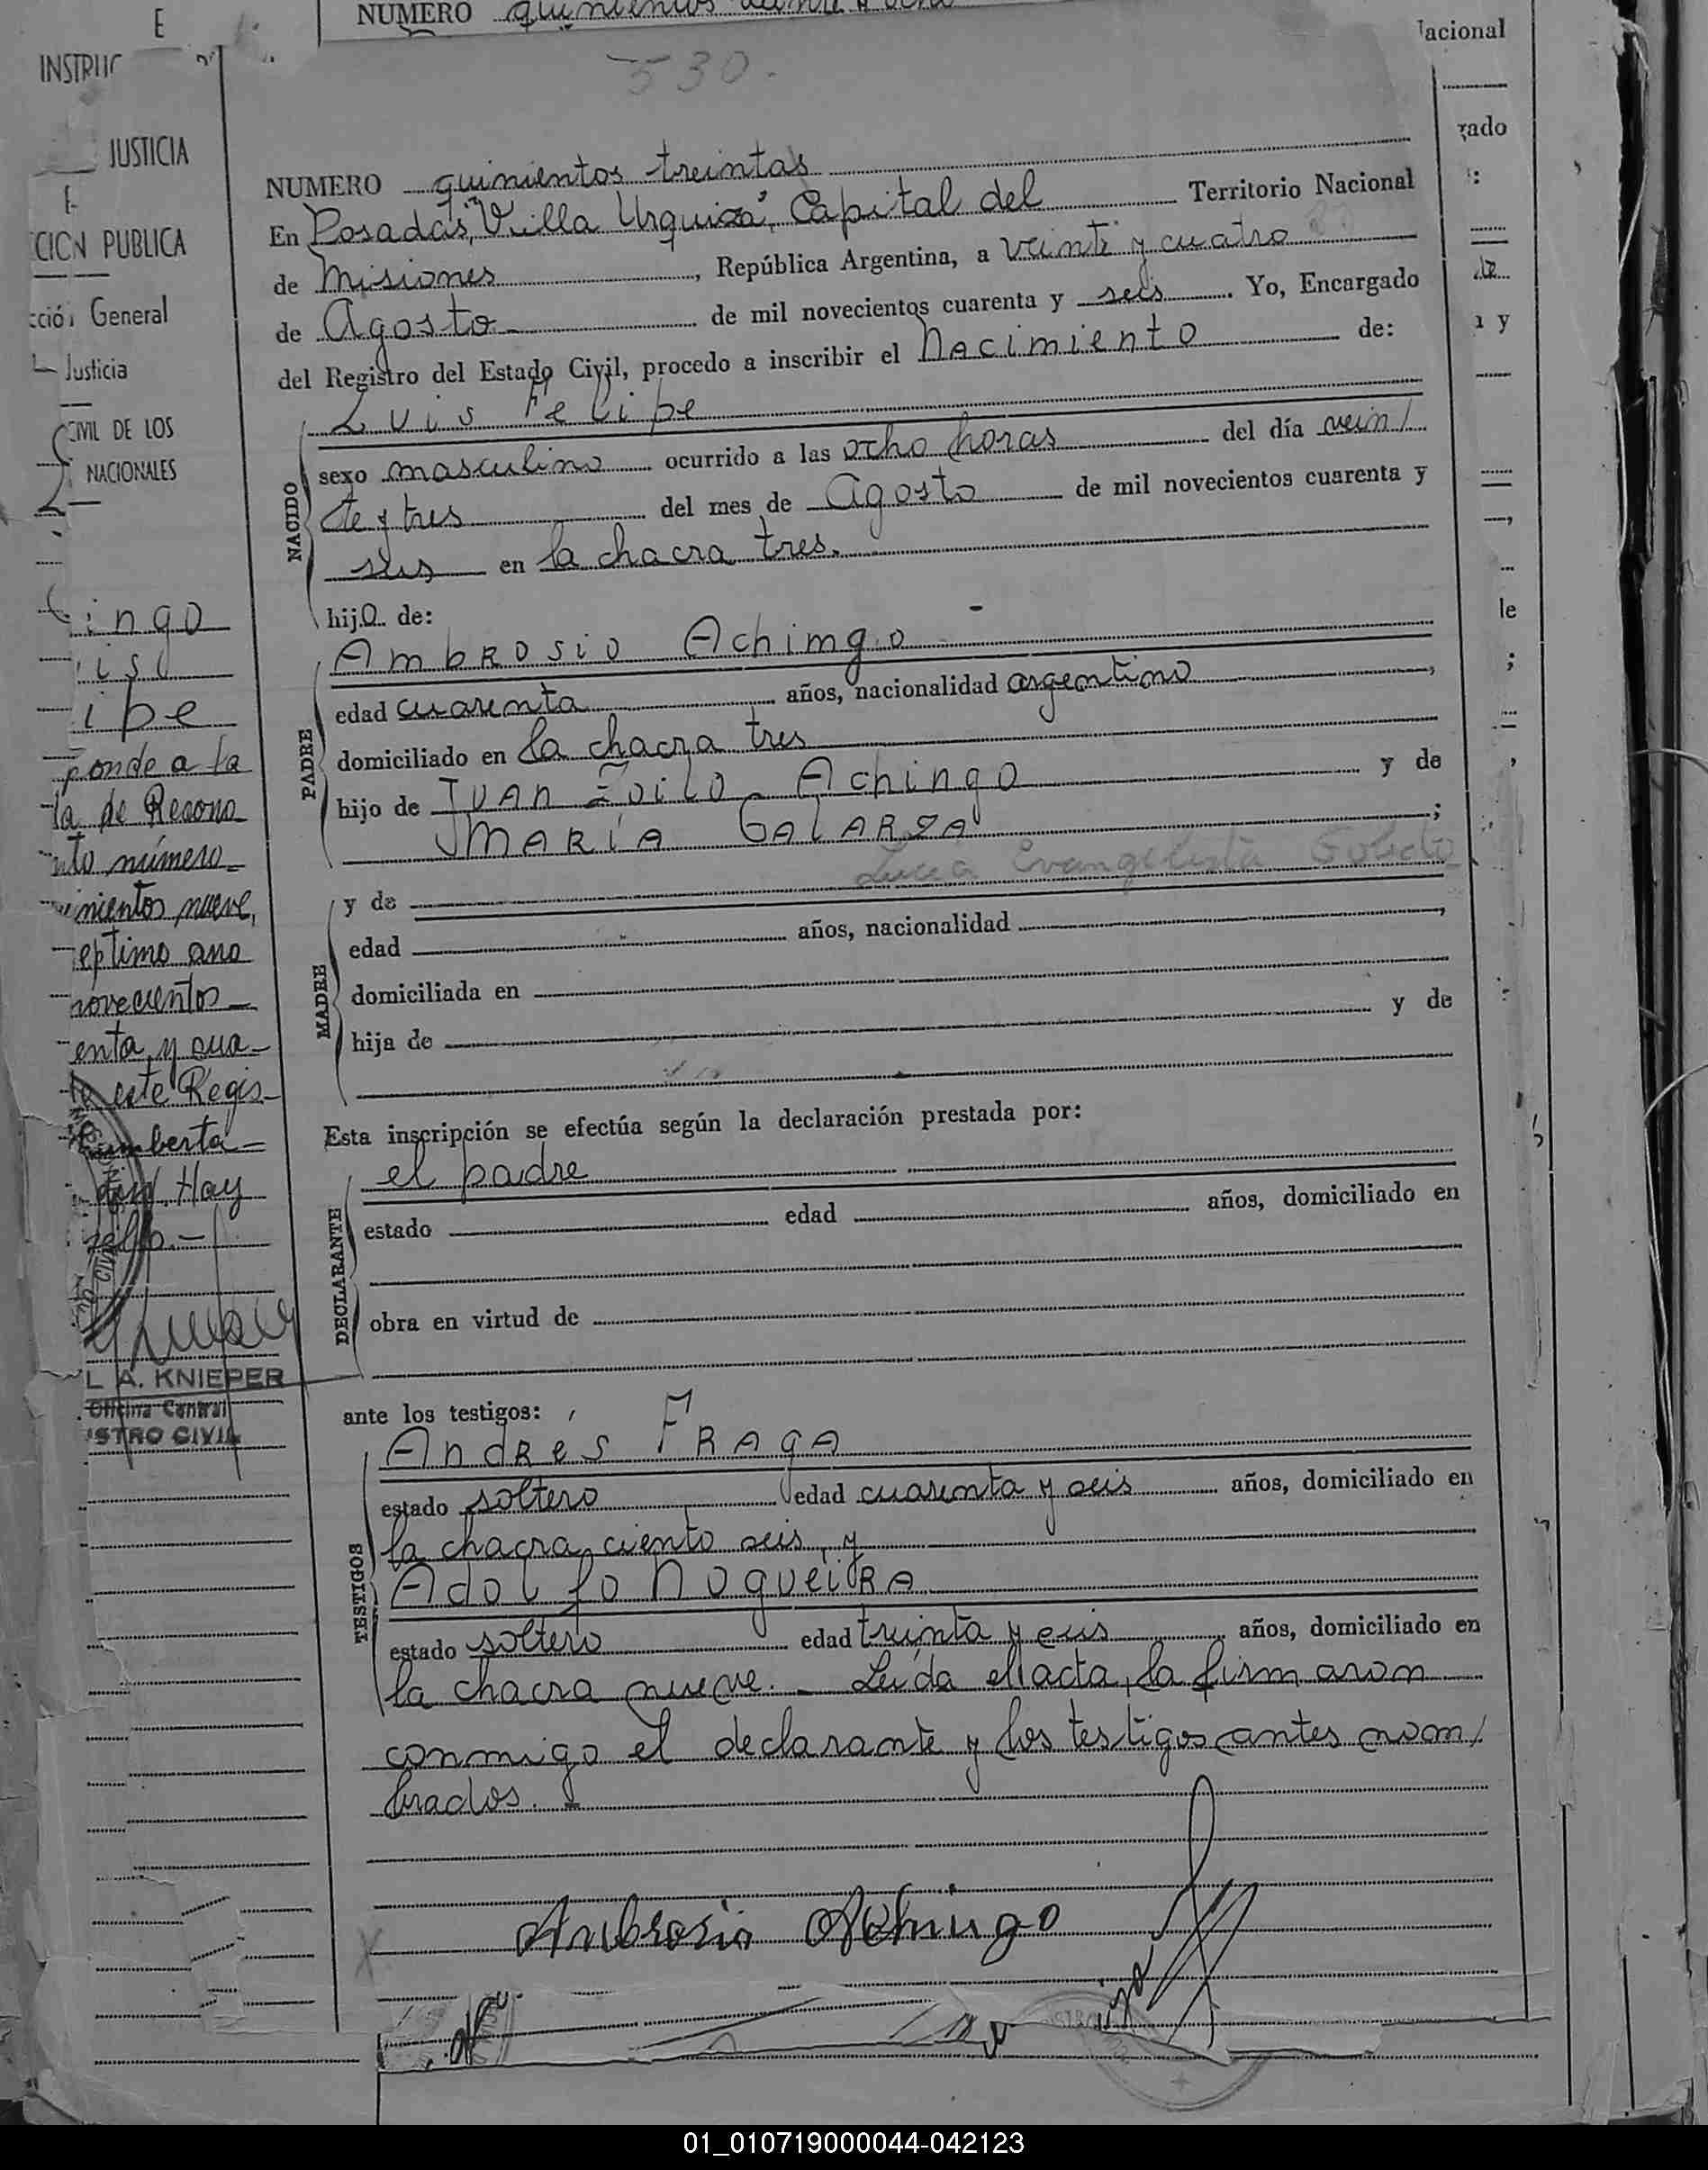 E
NUMERO quinientos
INSTRUC
Nacional
530.
JUSTICIA
rado
NUMERO quinientos treintas
CION PUBLICA
En Posadas, "Villa Urquiza", Capital del Territorio Nacional
de Misiones, República Argentina, a veinte y cuatro
cció General
de Agosto de mil novecientos cuarenta y seis. Yo, Encargado
Justicia
del Registro del Estado Civil, procedo a inscribir el nacimiento de:
CIVIL DE LOS
NACIONALES
NACIDO
Luis Felipe
sexo masculino ocurrido a las ocho horas del día vein/
te y tres del mes de Agosto de mil novecientos cuarenta y
seis en la chacra tres.
hijo de:
ingo
is
ipe
ponde a la
la de Recono
nto número
inientos nueve,
eptimo ano
novecientos
enta y cua-
este Regis-
umberta
Hay
sello.-
L A. KNIEPER
Oficina Central
STRO CIVIL
PADRE
Ambrosio Achimgo
edad cuarenta años, nacionalidad argentino,
domiciliado en la chacra tres
hijo de Juan Zoilo Achingo y de
María Galarza;
Lucia Evangelista
MADRE
y de
edad años, nacionalidad,
domiciliada en
hija de y de
Esta inscripción se efectúa según la declaración prestada por:
DECLARANTE
el padre
estado edad años, domiciliado en
obra en virtud de
ante los testigos:
TESTIGOS
Andres Fraga
estado soltero edad cuarenta y seis años, domiciliado en
la chacra ciento seis, y
Adolfo Nogueira
estado soltero edad treinta y seis años, domiciliado en
la chacra nueve. - Leída el acta, la firmaron
conmigo el declarante y los testigos antes nom/
brados. -
Ambrosio Achingo
01_010719000044-042123